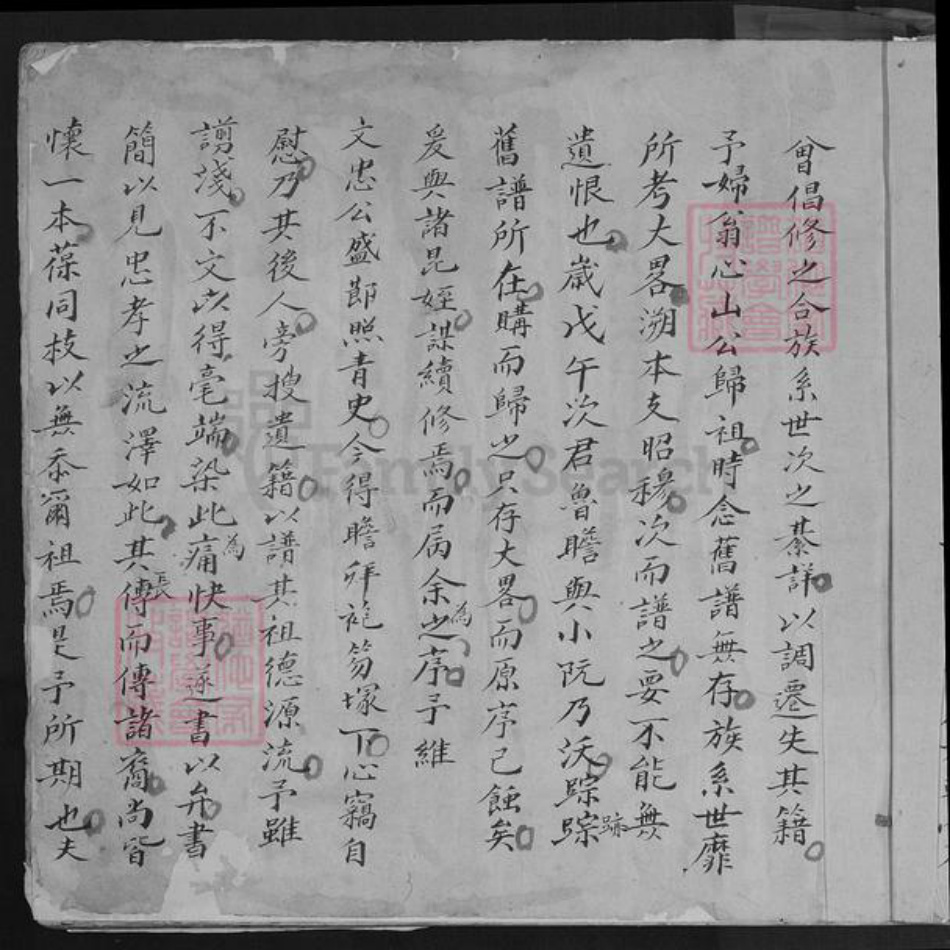 曾倡修之合族系世次之綦詳以調遷失其籍
予婦翁心山公歸祖時念舊譜無存族系世靡
所考大畧溯本支昭穆次而譜之要不能無
遺恨也歲戊午次君魯瞻與小阮乃沃踪踪跡
舊譜所在購而歸之只存大畧而原序已蝕矣
爰與諸昆姪謀續修焉而屬余為之序予維
文忠公盛節照青史今得瞻拜袍笏塚下心竊自
慰乃其後人旁搜遺籍以譜其祖德源流予雖
謭淺不文以得毫端染此為痛快事遂書以弁書
簡以見忠孝之流澤如此其長傳而傳諸裔尚皆
懷一本葆同枝以無忝爾祖焉是予所期也夫
FamilySearch